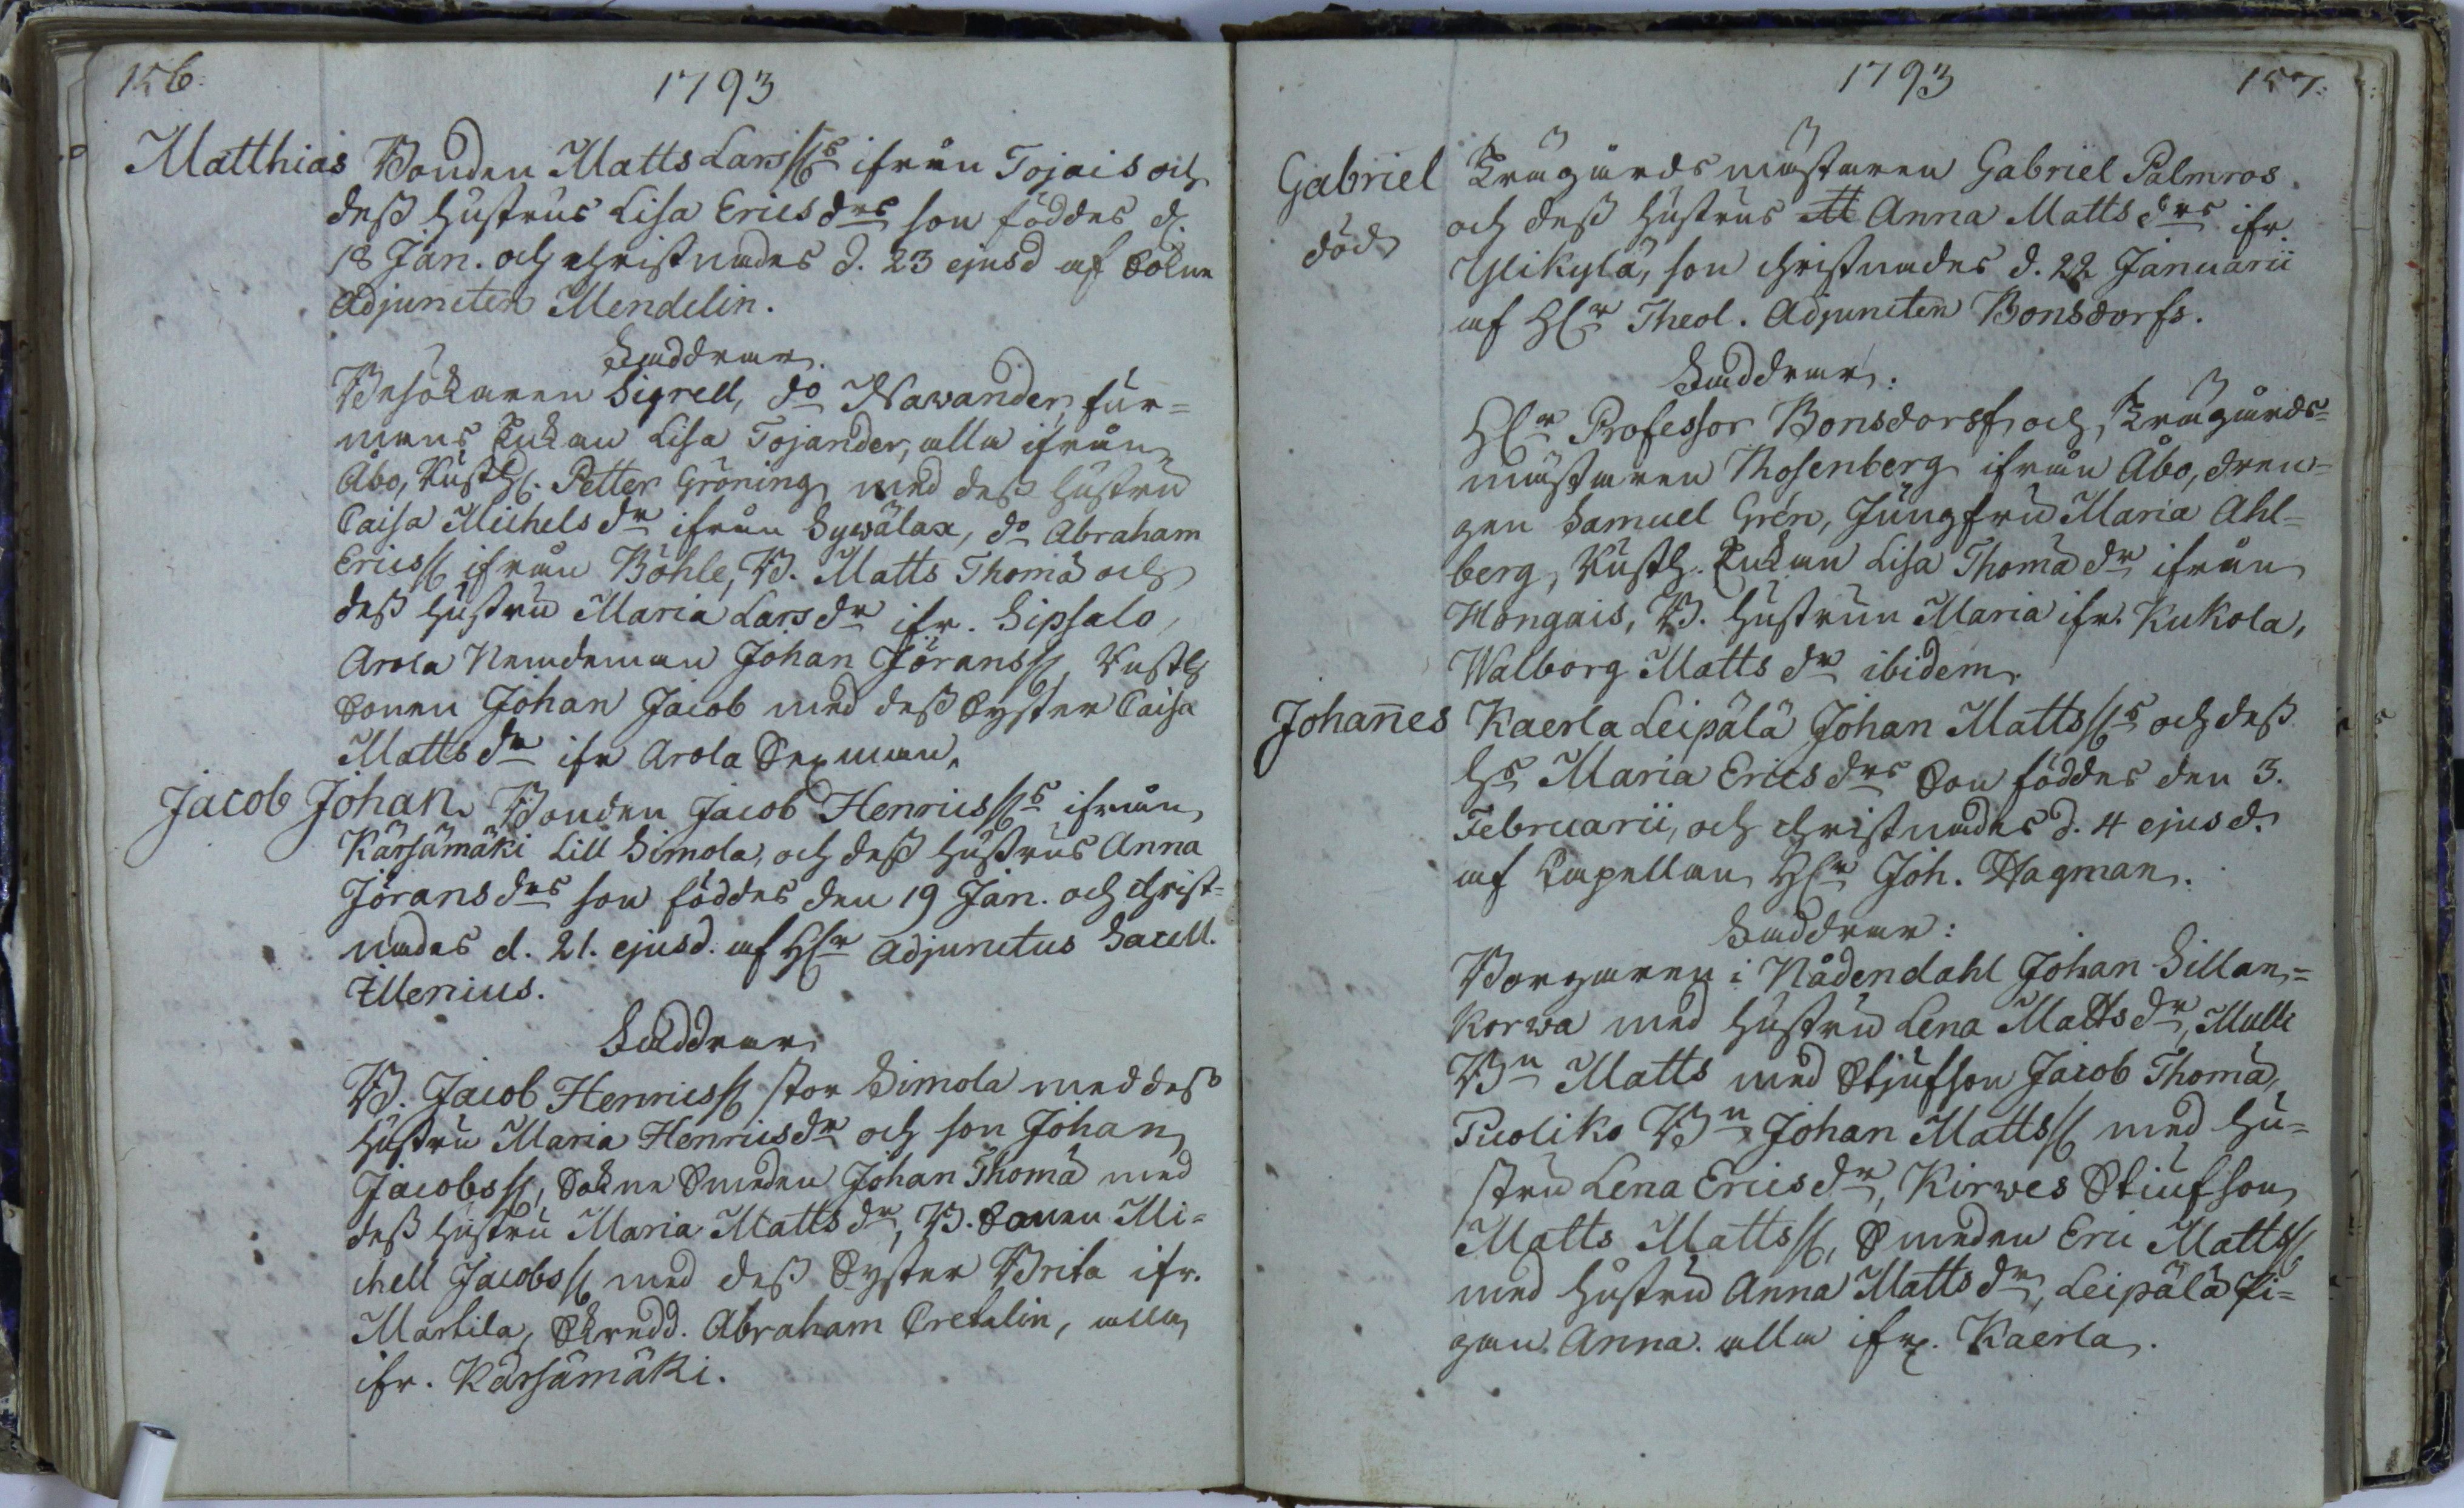 156.
1793
Matthias Bonden Matts Larss:s ifrån Tojais och
dess hustrus Lisa Ericsdrs son föddes d.
18 Jan. och christnades d. 23 ejusd af Sokne
Adjuncten Mendelin.
Faddrar.
Besökaren Sigrell, do Nawander, fur=
mans Enkan Lisa Tojander, alla ifrån
Åbo, Rusth. Petter Gröning med dess hustru
Caisa Michelsdr ifrån Sywälax, do Abraham
Ericss: ifrån Böhle, B. Matts Thomæ och
dess hustru Maria Larsdr ifr. Sipsalo,
Arola Nemdeman Johan Jöranss:, Rusth
Sonen Johan Jacob med dess Syster Caisa
Mattsdr ifr Arola Sexman.
Jacob Johan. Bonden Jacob Henricss:s ifrån
Kärsämäki Lill Simola, och dess hustrus Anna
Jöransdrs son föddes den 19 Jan. och christ=
nades d. 21. ejusd. af Hr Adjunctus Sacell.
Zillenius.
Faddrar
B. Jacob Henricss: stor Simola med dess
hustru Maria Henricsdr och son Johan
Jacobss:, Sokne Smeden Johan Thomæ med
dess hustru Maria Mattsdr, B. Sonen Mi=
chell Jacobss: med dess Syster Brita ifr.
Martila, Skredd. Abraham Cretalin, alla
ifr. Kärsämäki.
1793
157.
Gabriel Trägårdsmästaren Gabriel Palmros
död och dess hustrus M Anna Mattsdrs ifr.
Ylikylä, son christnades d. 22 Januarii
af Hr Theol. Adjuncten Bonsdorfs.
Faddrar:
Hr Professor Bonsdorff och Trägårds=
mästaren Rosenberg ifrån Åbo, dren=
gen Samuel Grén, Jungfru Maria Ahl=
berg, Rusth. Enkan Lisa Thomædr ifrån
Hongais, B. hustrun Maria ifr. Kukola,
Walborg Mattsdr ibidem.
Johañes Kaerla Leipälä Johan Mattss:s och dess
hs Maria Ericsdrs Son föddes den 3.
Februarii, och christnades d. 4 ejusd.
af Capellan Hr Joh. Hagman.
Faddrar:
Borgaren i Nådendahl Johan Sillan=
korwa med hustru Lena Mattsdr, Mulli
Bn Matts med Stjufson Jacob Thomæ,
Puoliko Bn Johan Mattss: med hu=
stru Lena Ericsdr, Kirwes Stiufson
Matts Mattss:, Smeden Eric Mattss:
med hustru Anna Mattsdr, Leipälä Pi=
gan Anna. alla ifr. Kaerla.